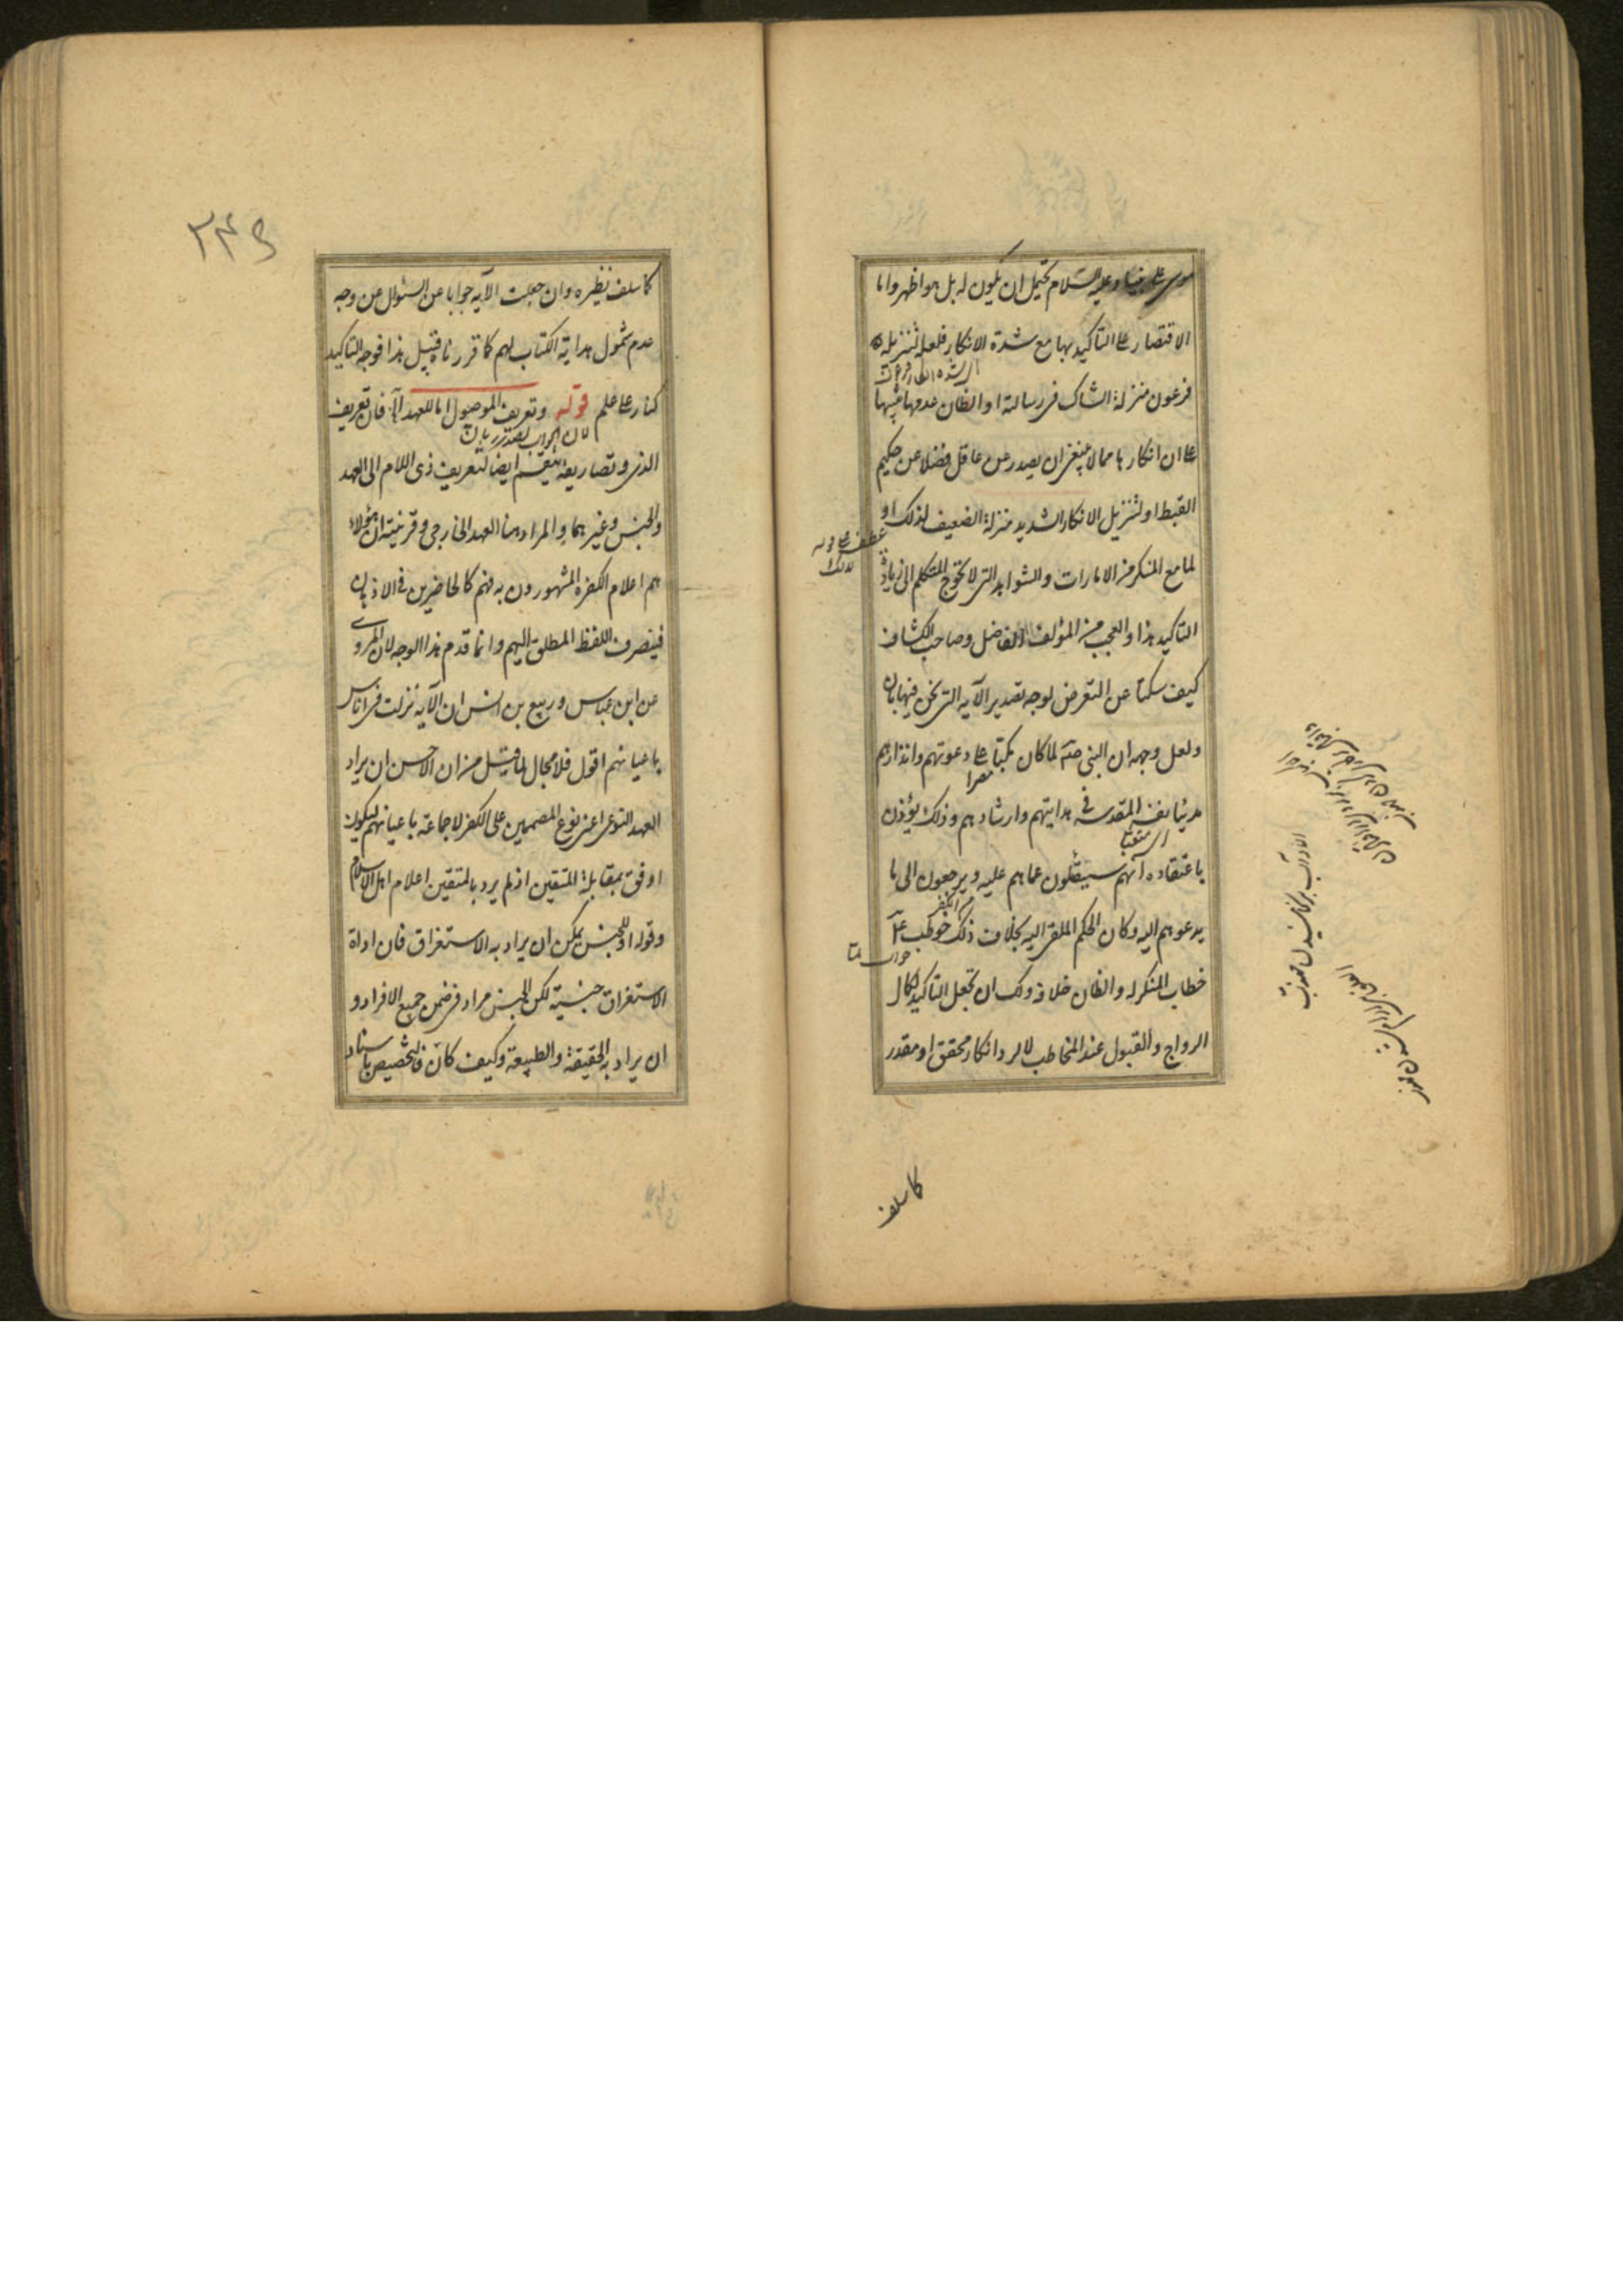 موسى على نبينا وعليه السلام يحتمل ان يكون له بل هو اظهر واما
الاقتصار على التاكيد بها مع شدة الانكار فلعله لتنزيله
فرعون منزلة الشاك فى رسالته او الظان عدمها تنبيها
على ان انكارها مما لا ينبغى ان يصدر عن عاقل فضلا عن حكيم
القبط او لتنزيل الانكار الشديد منزلة الضعيف لذلك او
عطف على قوله
لذلك
لما مع المنكر من الامارات والشواهد التى لا تحوج المتكلم الى زيادة
التاكيد هذا والعجب من المؤلف الفاضل وصاحب الكشاف
كيف سكتا عن التعرض لوجه تصدير الآية التى نحن فيها بان
ولعل وجهه ان النبى صلم لما كان مكبا على دعوتهم وانذارهم
مصرا
متعبا نفسه المقدسة فى هدايتهم وارشادهم وذلك يؤذن
اى متعبا
باعتقاده انهم سينتقلون عما هم عليه ويرجعون الى ما
يدعوهم اليه وكان الحكم الملقى اليه بخلاف ذلك خوطب ع
جواب لما
خطاب المنكر له والظان خلافه ولك ان تجعل التاكيد لكمال
الرواج والقبول عند المخاطب لا لرد انكار محقق او مقدر
كما سلف
٣٤٩
كما سلف نظيره وان جعلت الآية جوابا عن السئوال عن وجه
عدم شمول هداية الكتاب لهم كما قررناه قبيل هذا فوجه التاكيد
كنار على علم قوله وتعريف الموصول اما للعهد اه فان تعريف
الذى وتصاريفه ينقسم ايضا كتعريف ذى اللام الى العهد
والجنس وغيرهما والمراد هنا العهد الخارجى وقرينته ان هؤلاء
هم اعلام الكفرة المشهورون به فهم كالحاضرين فى الاذهان
فينصرف اللفظ المطلق اليهم وانما قدم هذا الوجه لان المروى
عن ابن عباس وربيع بن انس ان الآية نزلت فى اناس
باعيانهم اقول فلا مجال لما قيل من ان الاحسن ان يراد
العهد النوعى اعنى نوع المصممين على الكفر لا جماعة باعيانهم ليكون
اوفق بمقابلة المتقين اذ لم يرد بالمتقين اعلام اهل الاسلام
وقوله او للجنس يمكن ان يراد به الاستغراق فان اداة
الاستغراق جنسية لكن الجنس مراد فى ضمن جميع الافراد و
ان يراد به الحقيقة والطبيعة وكيف كان فالتخصيص باسناد